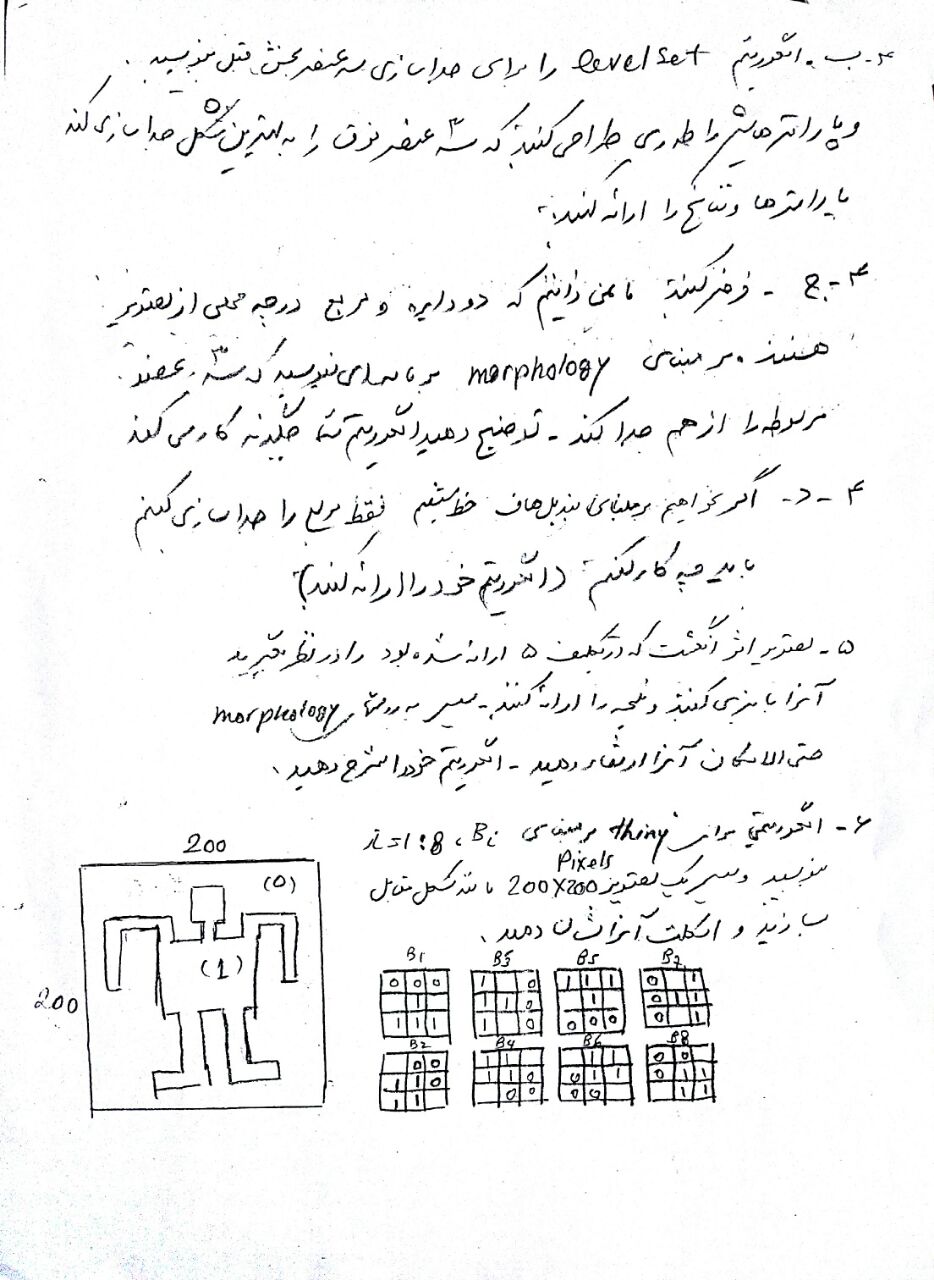 ۴-ب- الگوریتم level set را برای جداسازی سه عنصر بخش قبل بنویسید.
و پارامترهایش را طوری طراحی کنید که سه عنصر فوق را به بهترین شکل جداسازی کند
پارامترها و نتایج را ارائه کنید.
۴-ج- فرض کنید ما نمی دانیم که دو دایره و مربع در چه محلی از تصویر
هستند. بر مبنای morphology برنامه ای بنویسید که سه عضو
مربوطه را از هم جدا کند - توضیح دهید الگوریتم شما چگونه کار می کند
۴-د- اگر بخواهیم بر مبنای تبدیل هاف خط مستقیم فقط مربع را جداسازی کنیم
باید چه کار کنیم (الگوریتم خود را ارائه کنید)
۵- تصویر اثر انگشت که در تکلیف ۵ ارائه شده بود را در نظر بگیرید
آنرا باینری کنید و نتیجه را ارائه کنید. سپس به روش morphology
حتی الامکان آنرا ارتقاء دهید - الگوریتم خود را شرح دهید.
۶- الگوریتمی برای thing بر مبنای Bi ، i=1:8
بنویسید و سپس یک تصویر 200x200 Pixels مانند شکل مقابل
بسازید و اسکلت آنرا نشان دهید.
200
(0)
(1)
200
B1 B3 B5 B7
0 0 0 1 0 1 1 1 0 1
1 1 1 0 1 0 1 1
1 1 1 1 0 0 0 0 0 1
B2 B4 B6 B8
0 0 1 1 1 0 0
1 1 0 1 1 0 0 1 1 0 1 1
1 1 0 0 0 0 1 1